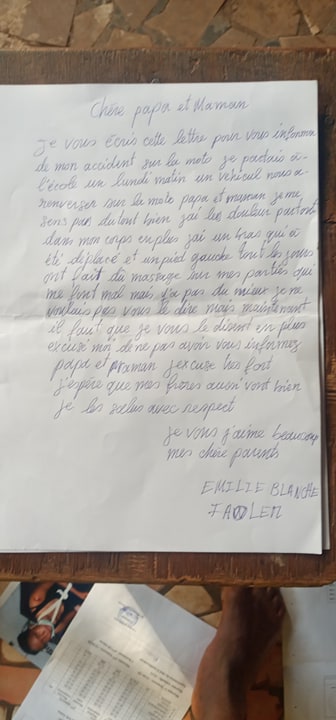 Chère papa et Maman
Je vous écris cette lettre pour vous informer
de mon accident sur la moto je partais à
l'école un lundi matin un vehicul nous a
renverser sur la moto papa et maman je me
sens pas du tout bien j'ai les douleur partout
dans mon corps en plus j'ai un bras qui a
été déplacé et un pied gauche tout les jours
ont fait du massage sur mes parties qui
me font mal mais y'a pas du mieux je ne
voulais pas vous le dire mais maintenant
il faut que je vous le disent en plus
excusé moi de ne pas avoir vous informez
papa et maman j'excuse très fort
j'espère que mes frères aussi vont bien
je les salus avec respect
je vous j'aime beaucoup
mes chère parents
EMILIE BLANCHE